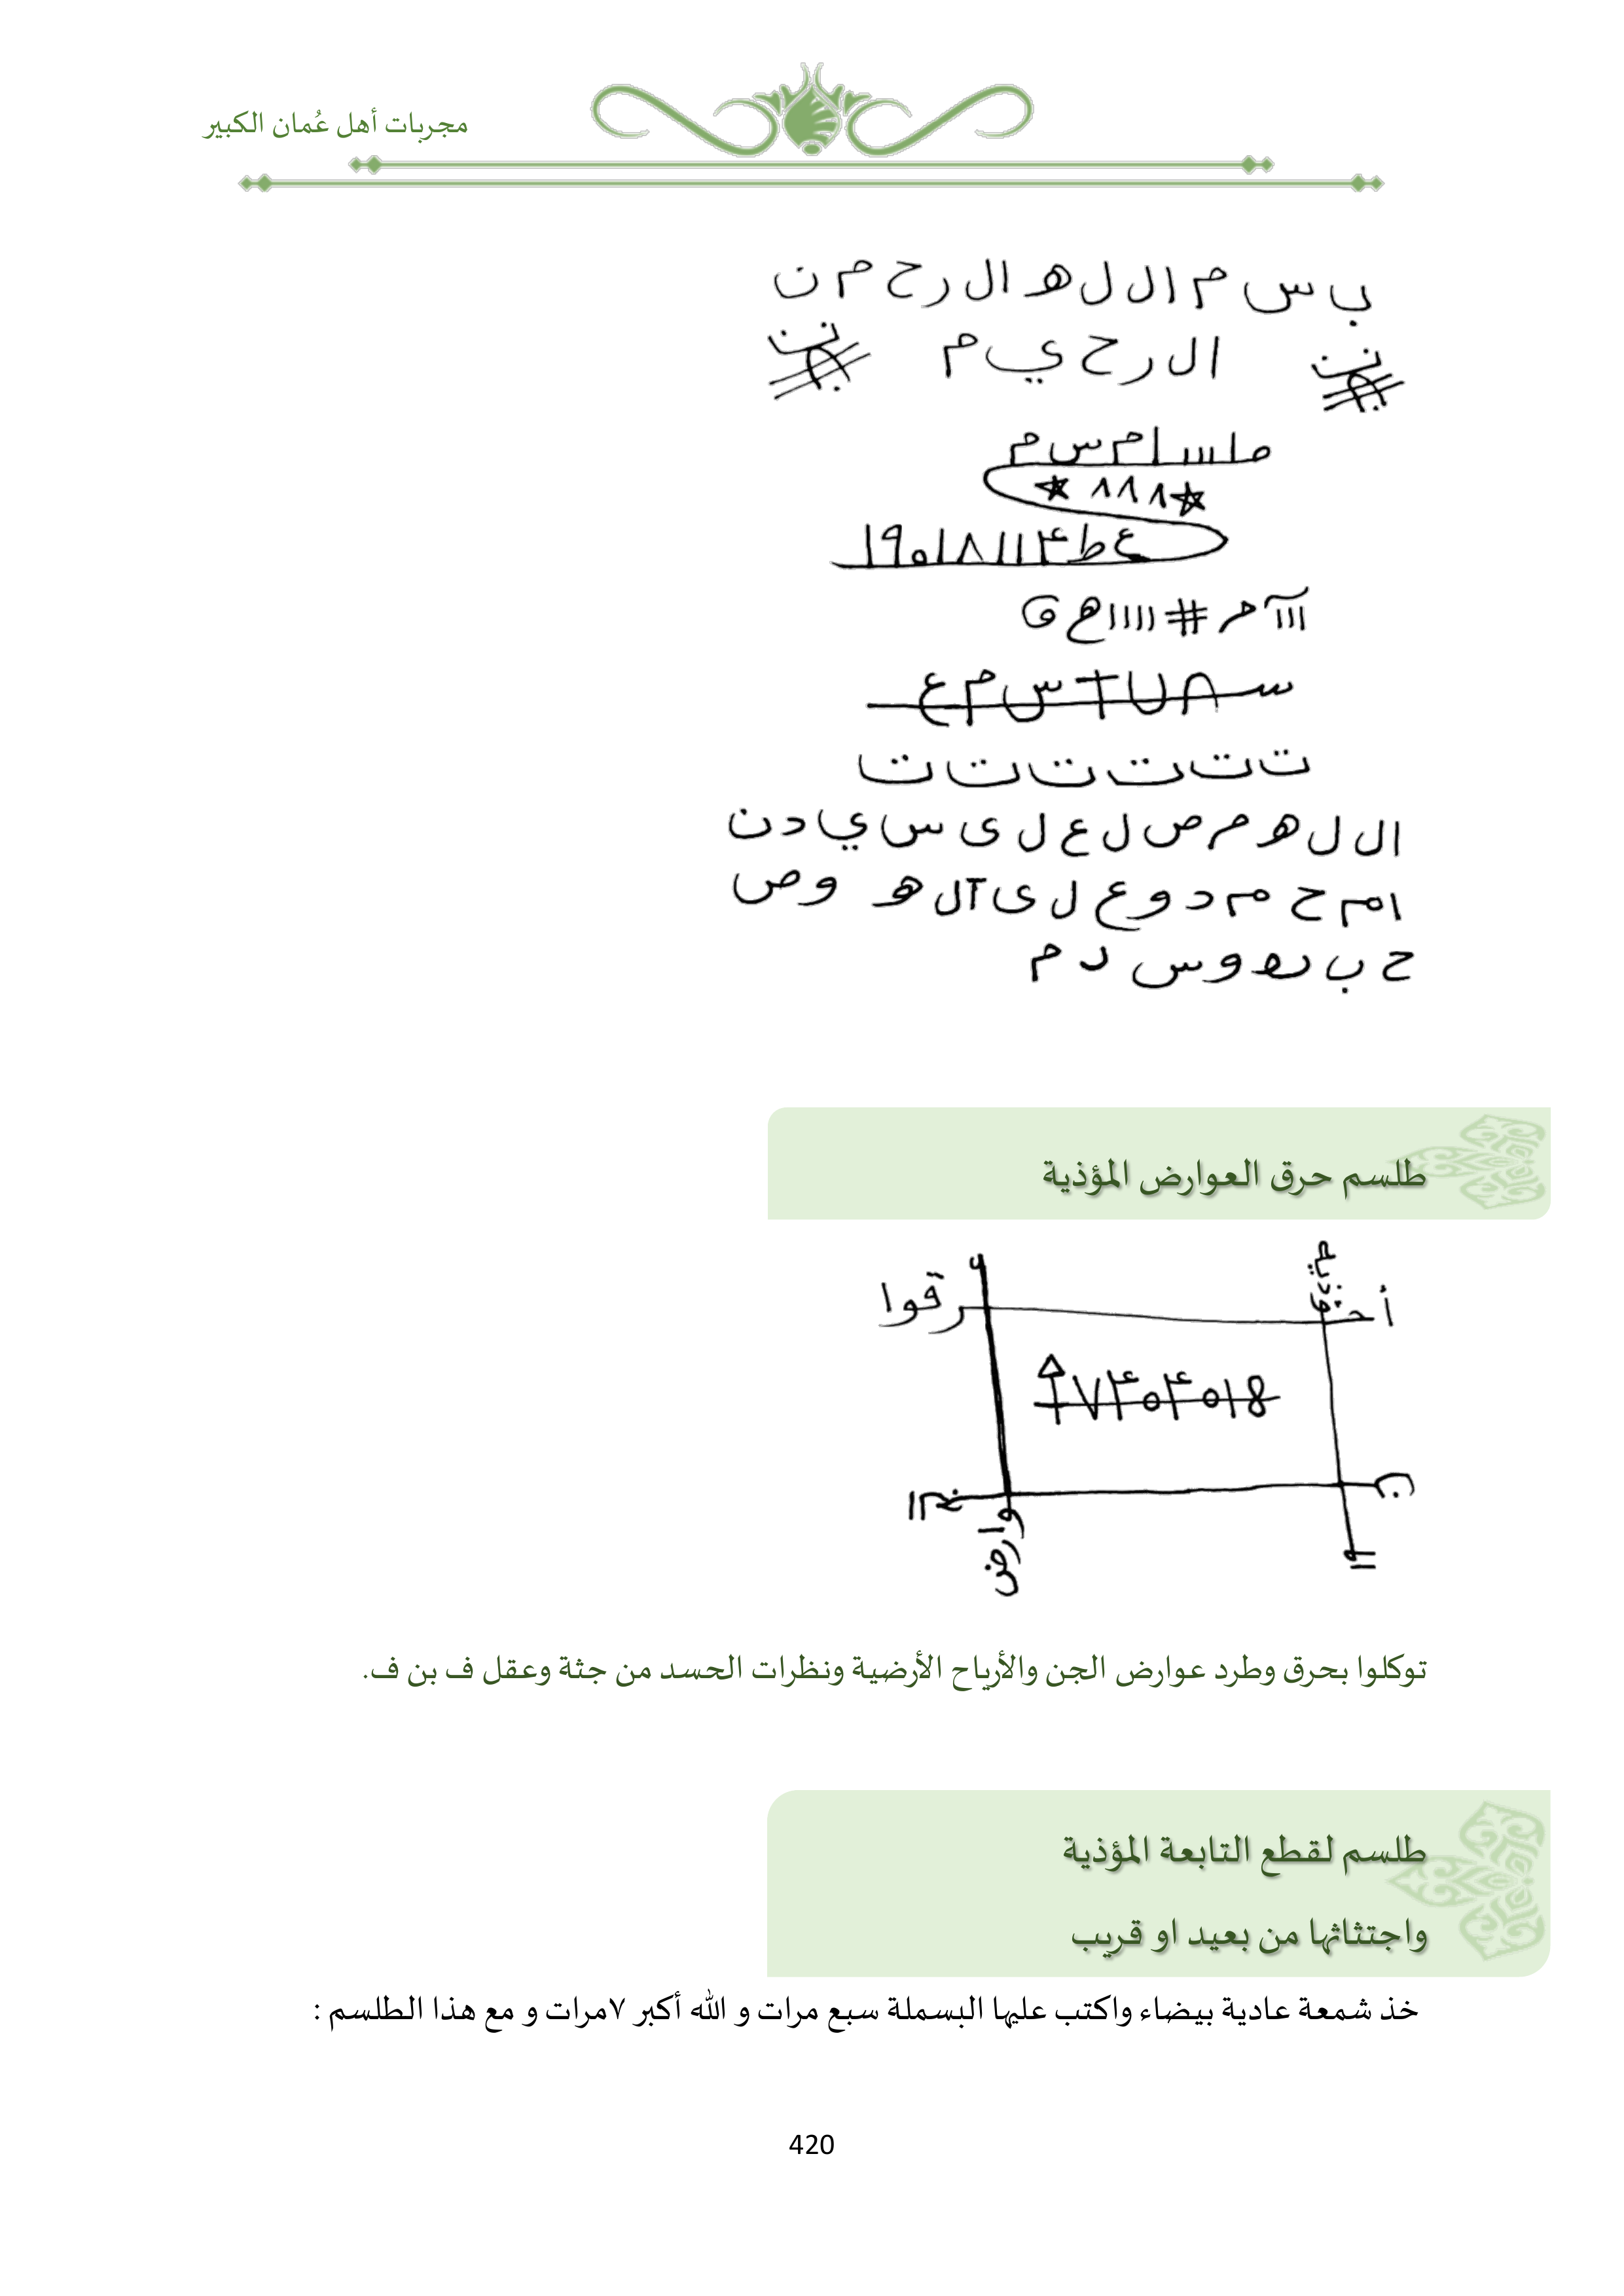 مجربات أهل عُمان الكبير
ب س م ا ل ل هـ ا ل ر ح م ن
ا ل ر ح ي م
★ ٨٨٨ ★
ع ط ۴ ١١ ٨ ١ ٥ ٩ ١
س م ع
ت ت ت ت ت ت
ا ل ل هـ م ص ل ع ل ى س ي د ن
ا م ح م د و ع ل ى آ ل هـ و ص
ح ب هـ و س ل م
طلسم حرق العوارض المؤذية
أحـ رقوا
وارض
توكلوا بحرق وطرد عوارض الجن والأرياح الأرضية ونظرات الحسد من جثة وعقل ف بن ف.
طلسم لقطع التابعة المؤذية
واجتثاثها من بعيد او قريب
خذ شمعة عادية بيضاء واكتب عليها البسملة سبع مرات و الله أكبر ٧مرات و مع هذا الطلسم :
420